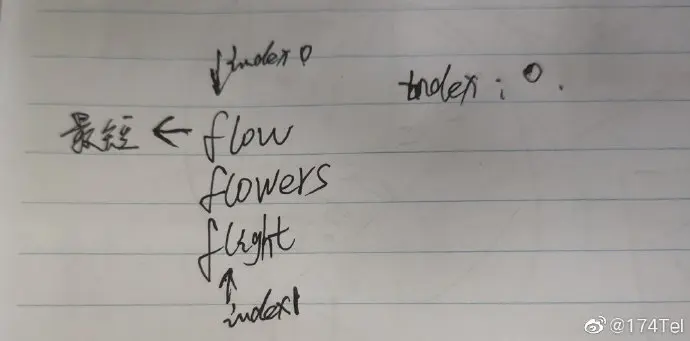 index 0
index : 0.
最短 ← flow
flowers
flight
index1
@174Tel